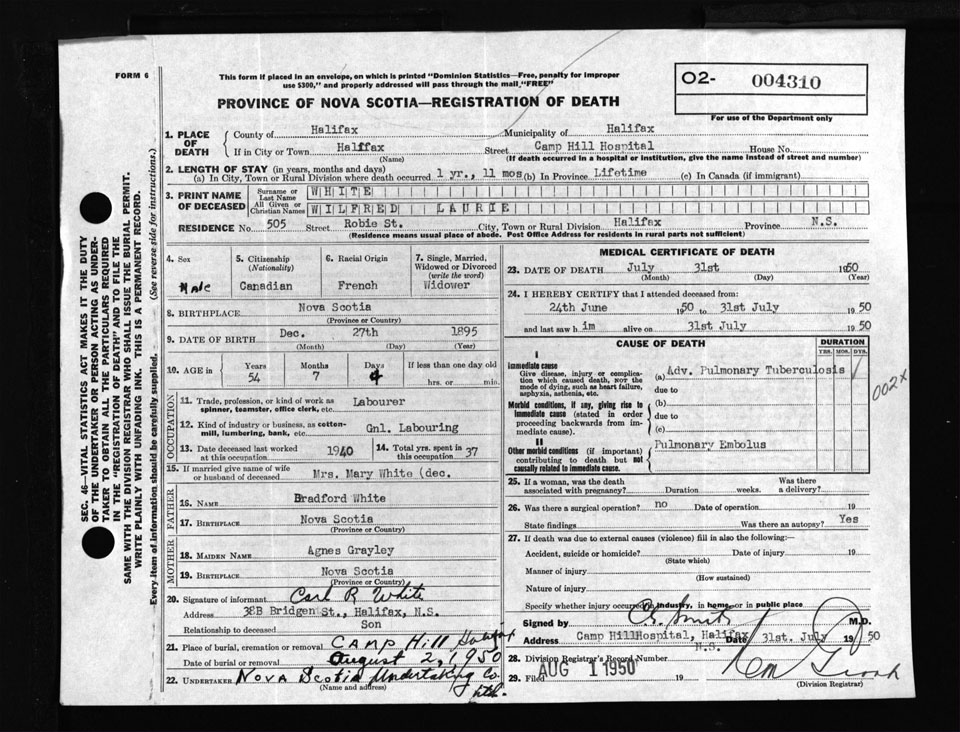 FORM 6
This form if placed in an envelope, on which is printed "Dominion Statistics—Free, penalty for improper
use $300," and properly addressed will pass through the mail "FREE"
PROVINCE OF NOVA SCOTIA—REGISTRATION OF DEATH
O2- 004310
For use of the Department only
1. PLACE OF DEATH
County of Halifax Municipality of Halifax
If in City or Town Halifax Street Camp Hill Hospital House No.
(Name) (If death occurred in a hospital or institution, give the name instead of street and number)
2. LENGTH OF STAY (in years, months and days)
(a) In City, Town or Rural Division where death occurred 1 yr., 11 mos (b) In Province Lifetime (c) In Canada (if immigrant)
3. PRINT NAME OF DECEASED
Surname or Last Name WHITE
All Given or Christian Names WILFRED LAURIE
RESIDENCE No. 505 Street Robie St. City, Town or Rural Division Halifax Province N.S.
(Residence means usual place of abode. Post Office Address for residents in rural parts not sufficient)
4. Sex Male
5. Citizenship (Nationality) Canadian
6. Racial Origin French
7. Single, Married, Widowed or Divorced (write the word) Widower
8. BIRTHPLACE Nova Scotia
(Province or Country)
9. DATE OF BIRTH Dec. 27th 1895
(Month) (Day) (Year)
10. AGE in Years 54 Months 7 Days 4 If less than one day old hrs. or min.
OCCUPATION
11. Trade, profession, or kind of work as spinner, teamster, office clerk, etc. Labourer
12. Kind of industry or business, as cotton-mill, lumbering, bank, etc. Gnl. Labouring
13. Date deceased last worked at this occupation 1940
14. Total yrs. spent in this occupation 37
15. If married give name of wife or husband of deceased Mrs. Mary White (dec.
FATHER
16. NAME Bradford White
17. BIRTHPLACE Nova Scotia
(Province or Country)
MOTHER
18. MAIDEN NAME Agnes Grayley
19. BIRTHPLACE Nova Scotia
(Province or Country)
20. Signature of informant Carl R White
Address 38B Bridgen St., Halifax, N.S.
Relationship to deceased Son
21. Place of burial, cremation or removal Camp Hill Halifax
Date of burial or removal August 2, 1950
22. UNDERTAKER Nova Scotia Undertaking Co. Ltd.
(Name and address)
MEDICAL CERTIFICATE OF DEATH
23. DATE OF DEATH July 31st 1950
(Month) (Day) (Year)
24. I HEREBY CERTIFY that I attended deceased from:
24th June 1950 to 31st July 1950
and last saw him alive on 31st July 1950
CAUSE OF DEATH
DURATION
YRS. MOS. DYS.
I
Immediate cause
Give disease, injury or complication which caused death, NOT the mode of dying, such as heart failure, asphyxia, asthenia, etc.
(a) Adv. Pulmonary Tuberculosis
due to
002X
Morbid conditions, if any, giving rise to immediate cause (stated in order proceeding backwards from immediate cause).
(b)
due to
(c)
II
Other morbid conditions (if important) contributing to death but not causally related to immediate cause.
Pulmonary Embolus
25. If a woman, was the death associated with pregnancy? Duration weeks. Was there a delivery?
26. Was there a surgical operation? no Date of operation 19
State findings Was there an autopsy? Yes
27. If death was due to external causes (violence) fill in also the following:—
Accident, suicide or homicide? Date of injury 19
(State which)
Manner of injury
(How sustained)
Nature of injury
Specify whether injury occurred in industry, in home, or in public place
Signed by M.D.
Address Camp Hill Hospital, Halifax N.S. Date 31st. July 1950
28. Division Registrar's Record Number
29. Filed AUG 1 1950 19
(Division Registrar)
SEC. 46—VITAL STATISTICS ACT MAKES IT THE DUTY
OF THE UNDERTAKER OR PERSON ACTING AS UNDER-
TAKER TO OBTAIN ALL THE PARTICULARS REQUIRED
IN THE "REGISTRATION OF DEATH" AND TO FILE THE
SAME WITH THE DIVISION REGISTRAR WHO SHALL ISSUE THE BURIAL PERMIT.
WRITE PLAINLY WITH UNFADING INK. THIS IS A PERMANENT RECORD.
Every item of Information should be carefully supplied. (See reverse side for instructions.)